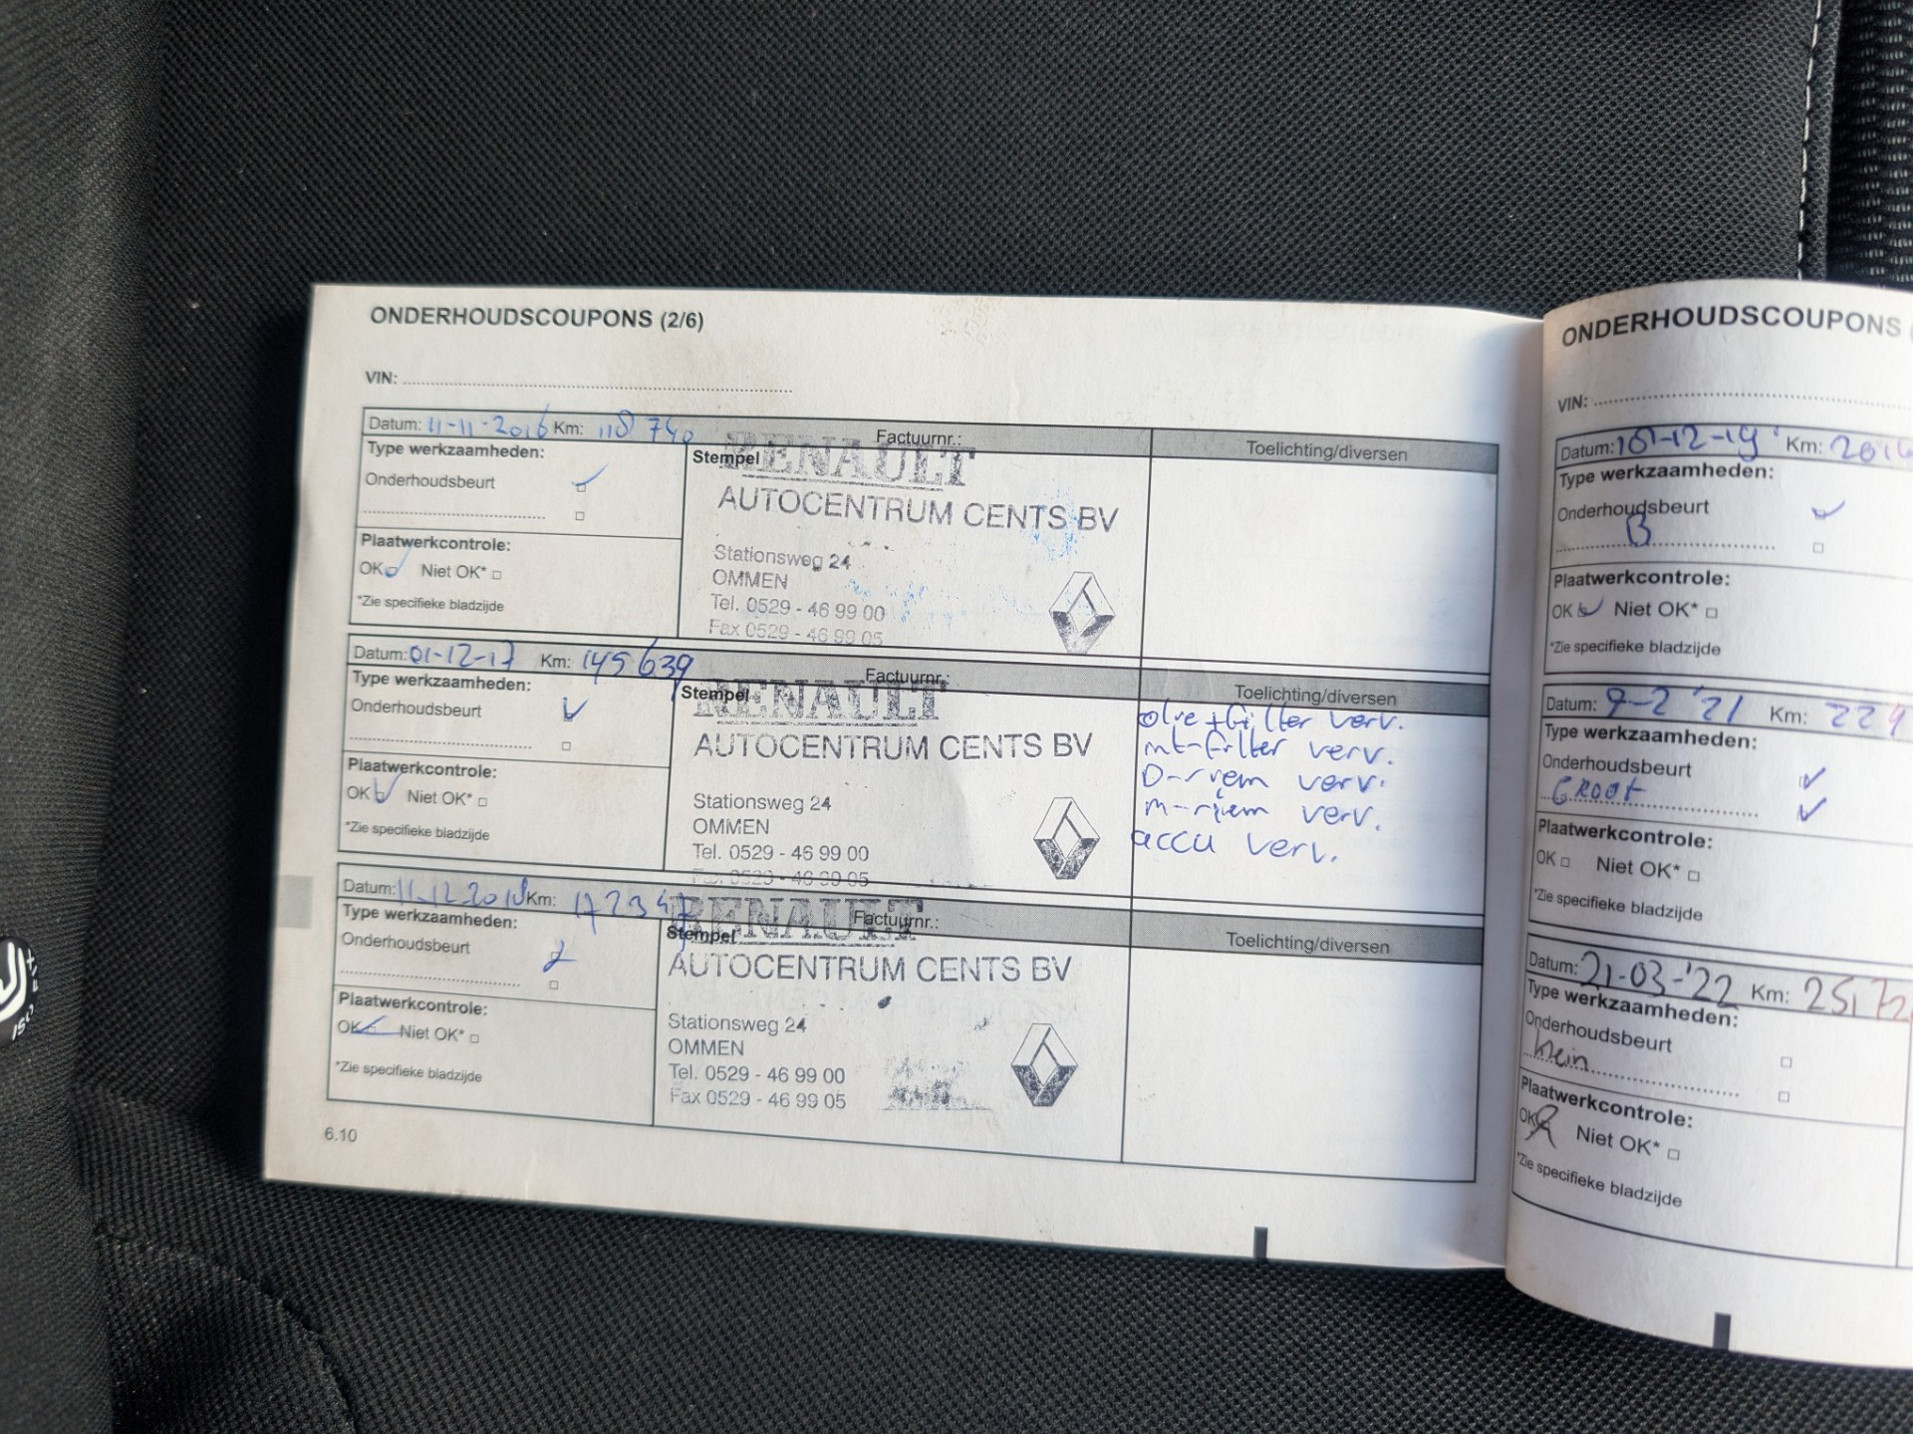 ONDERHOUDSCOUPONS (2/6)
VIN:
Datum: 11-11-2016 Km: 118 740 Factuurnr.: Toelichting/diversen
Type werkzaamheden:
Onderhoudsbeurt
Plaatwerkcontrole:
OK Niet OK*
*Zie specifieke bladzijde
Stempel
RENAULT
AUTOCENTRUM CENTS BV
Stationsweg 24
OMMEN
Tel. 0529 - 46 99 00
Fax 0529 - 46 99 05
Datum: 01-12-17 Km: 145 639 Factuurnr.: Toelichting/diversen
Type werkzaamheden:
Onderhoudsbeurt
Plaatwerkcontrole:
OK Niet OK*
*Zie specifieke bladzijde
Stempel
RENAULT
AUTOCENTRUM CENTS BV
Stationsweg 24
OMMEN
Tel. 0529 - 46 99 00
Fax 0529 - 46 99 05
olie + filter verv.
int-filter verv.
D-riem verv.
m-riem verv.
accu verv.
Datum: 11-12-2018 Km: 172347 Factuurnr.: Toelichting/diversen
Type werkzaamheden:
Onderhoudsbeurt
Plaatwerkcontrole:
OK Niet OK*
*Zie specifieke bladzijde
Stempel
RENAULT
AUTOCENTRUM CENTS BV
Stationsweg 24
OMMEN
Tel. 0529 - 46 99 00
Fax 0529 - 46 99 05
6.10
ONDERHOUDSCOUPONS (
VIN:
Datum: Km:
Type werkzaamheden:
Onderhoudsbeurt
B
Plaatwerkcontrole:
OK Niet OK*
*Zie specifieke bladzijde
Datum: 9-2 '21 Km: 229
Type werkzaamheden:
Onderhoudsbeurt
GROOT
Plaatwerkcontrole:
OK Niet OK*
*Zie specifieke bladzijde
Datum: 21-03-'22 Km: 25172
Type werkzaamheden:
Onderhoudsbeurt
klein
Plaatwerkcontrole:
OK Niet OK*
*Zie specifieke bladzijde